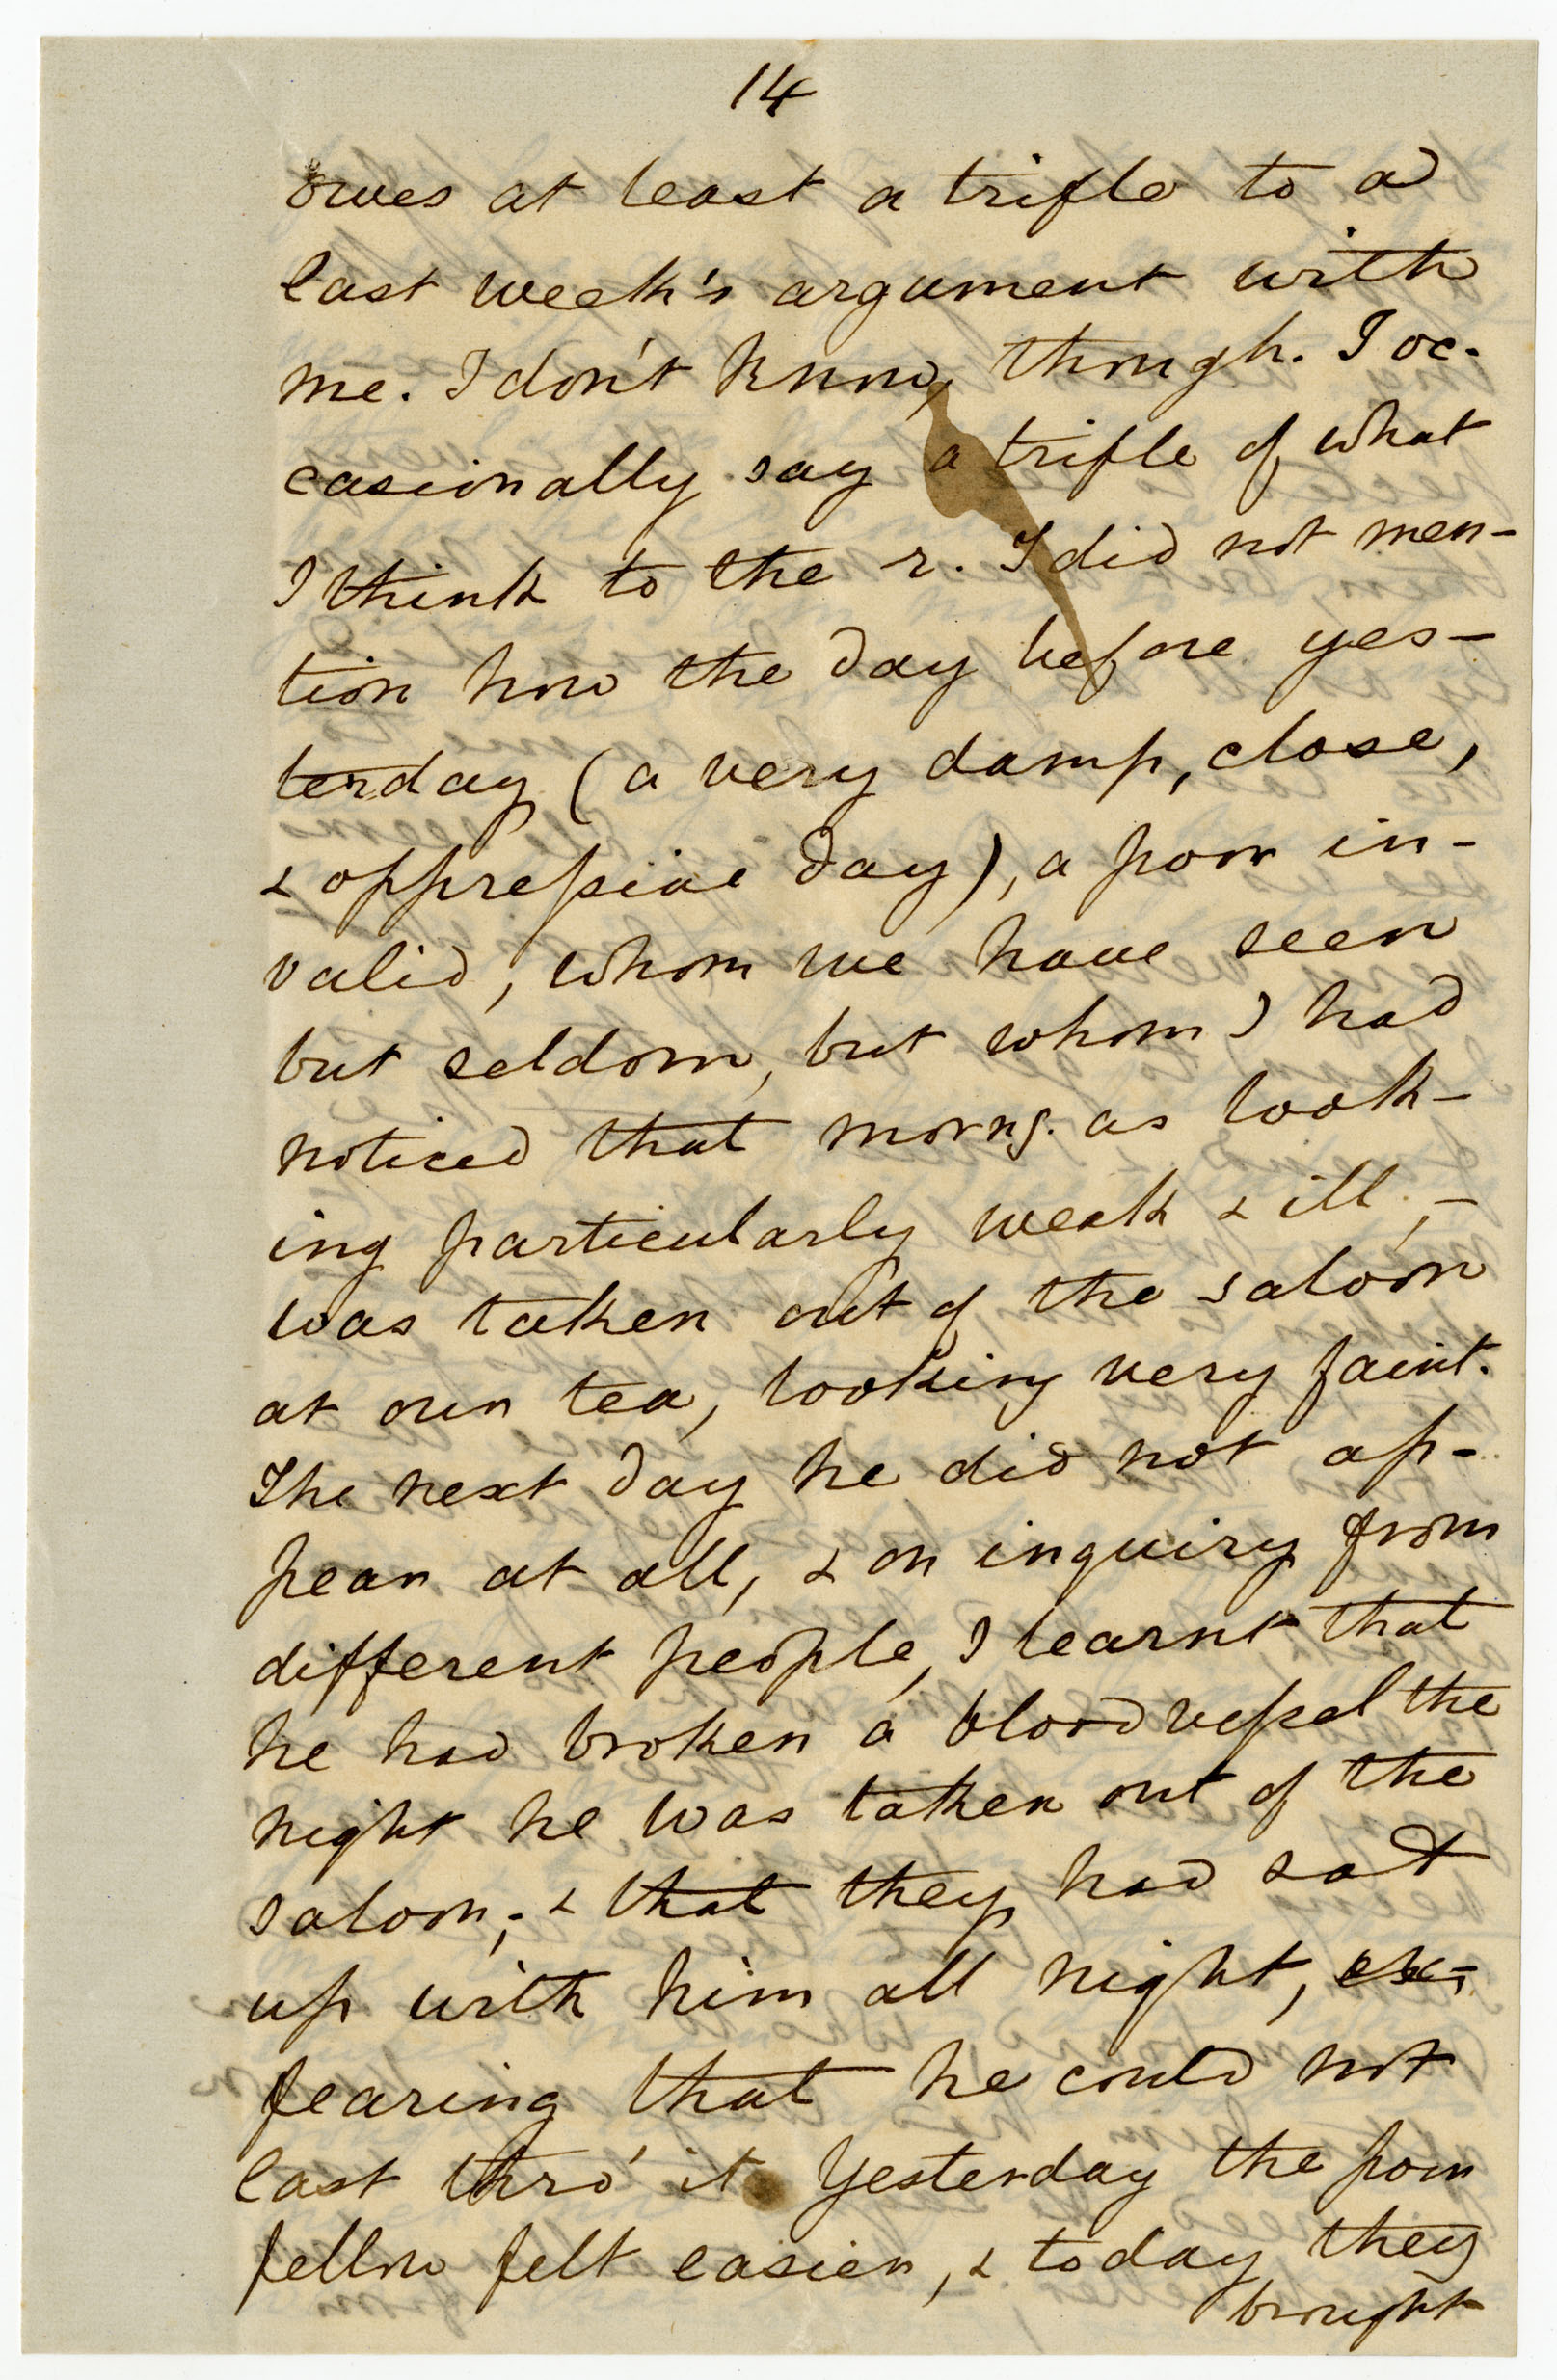 14
owes at least a trifle to a
last week's argument with
me. I don't know, though. I oc-
casionally say a trifle of what
I think to the r. I did not men-
tion how the day before yes-
terday (a very damp, close,
& oppressive day), a poor in-
valid, whom we have seen
but seldom, but whom I had
noticed that morng. as look-
ing particularly weak & ill, -
was taken out of the saloon
at our tea, looking very faint.
The next day he did not ap-
pear at all, & on inquiry from
different people, I learnt that
he had broken a bloodvessel the
night he was taken out of the
saloon; & that they had sat
up with him all night, ex-
fearing that he could not
last thro' it. Yesterday the poor
fellow felt easier, & today they
brought